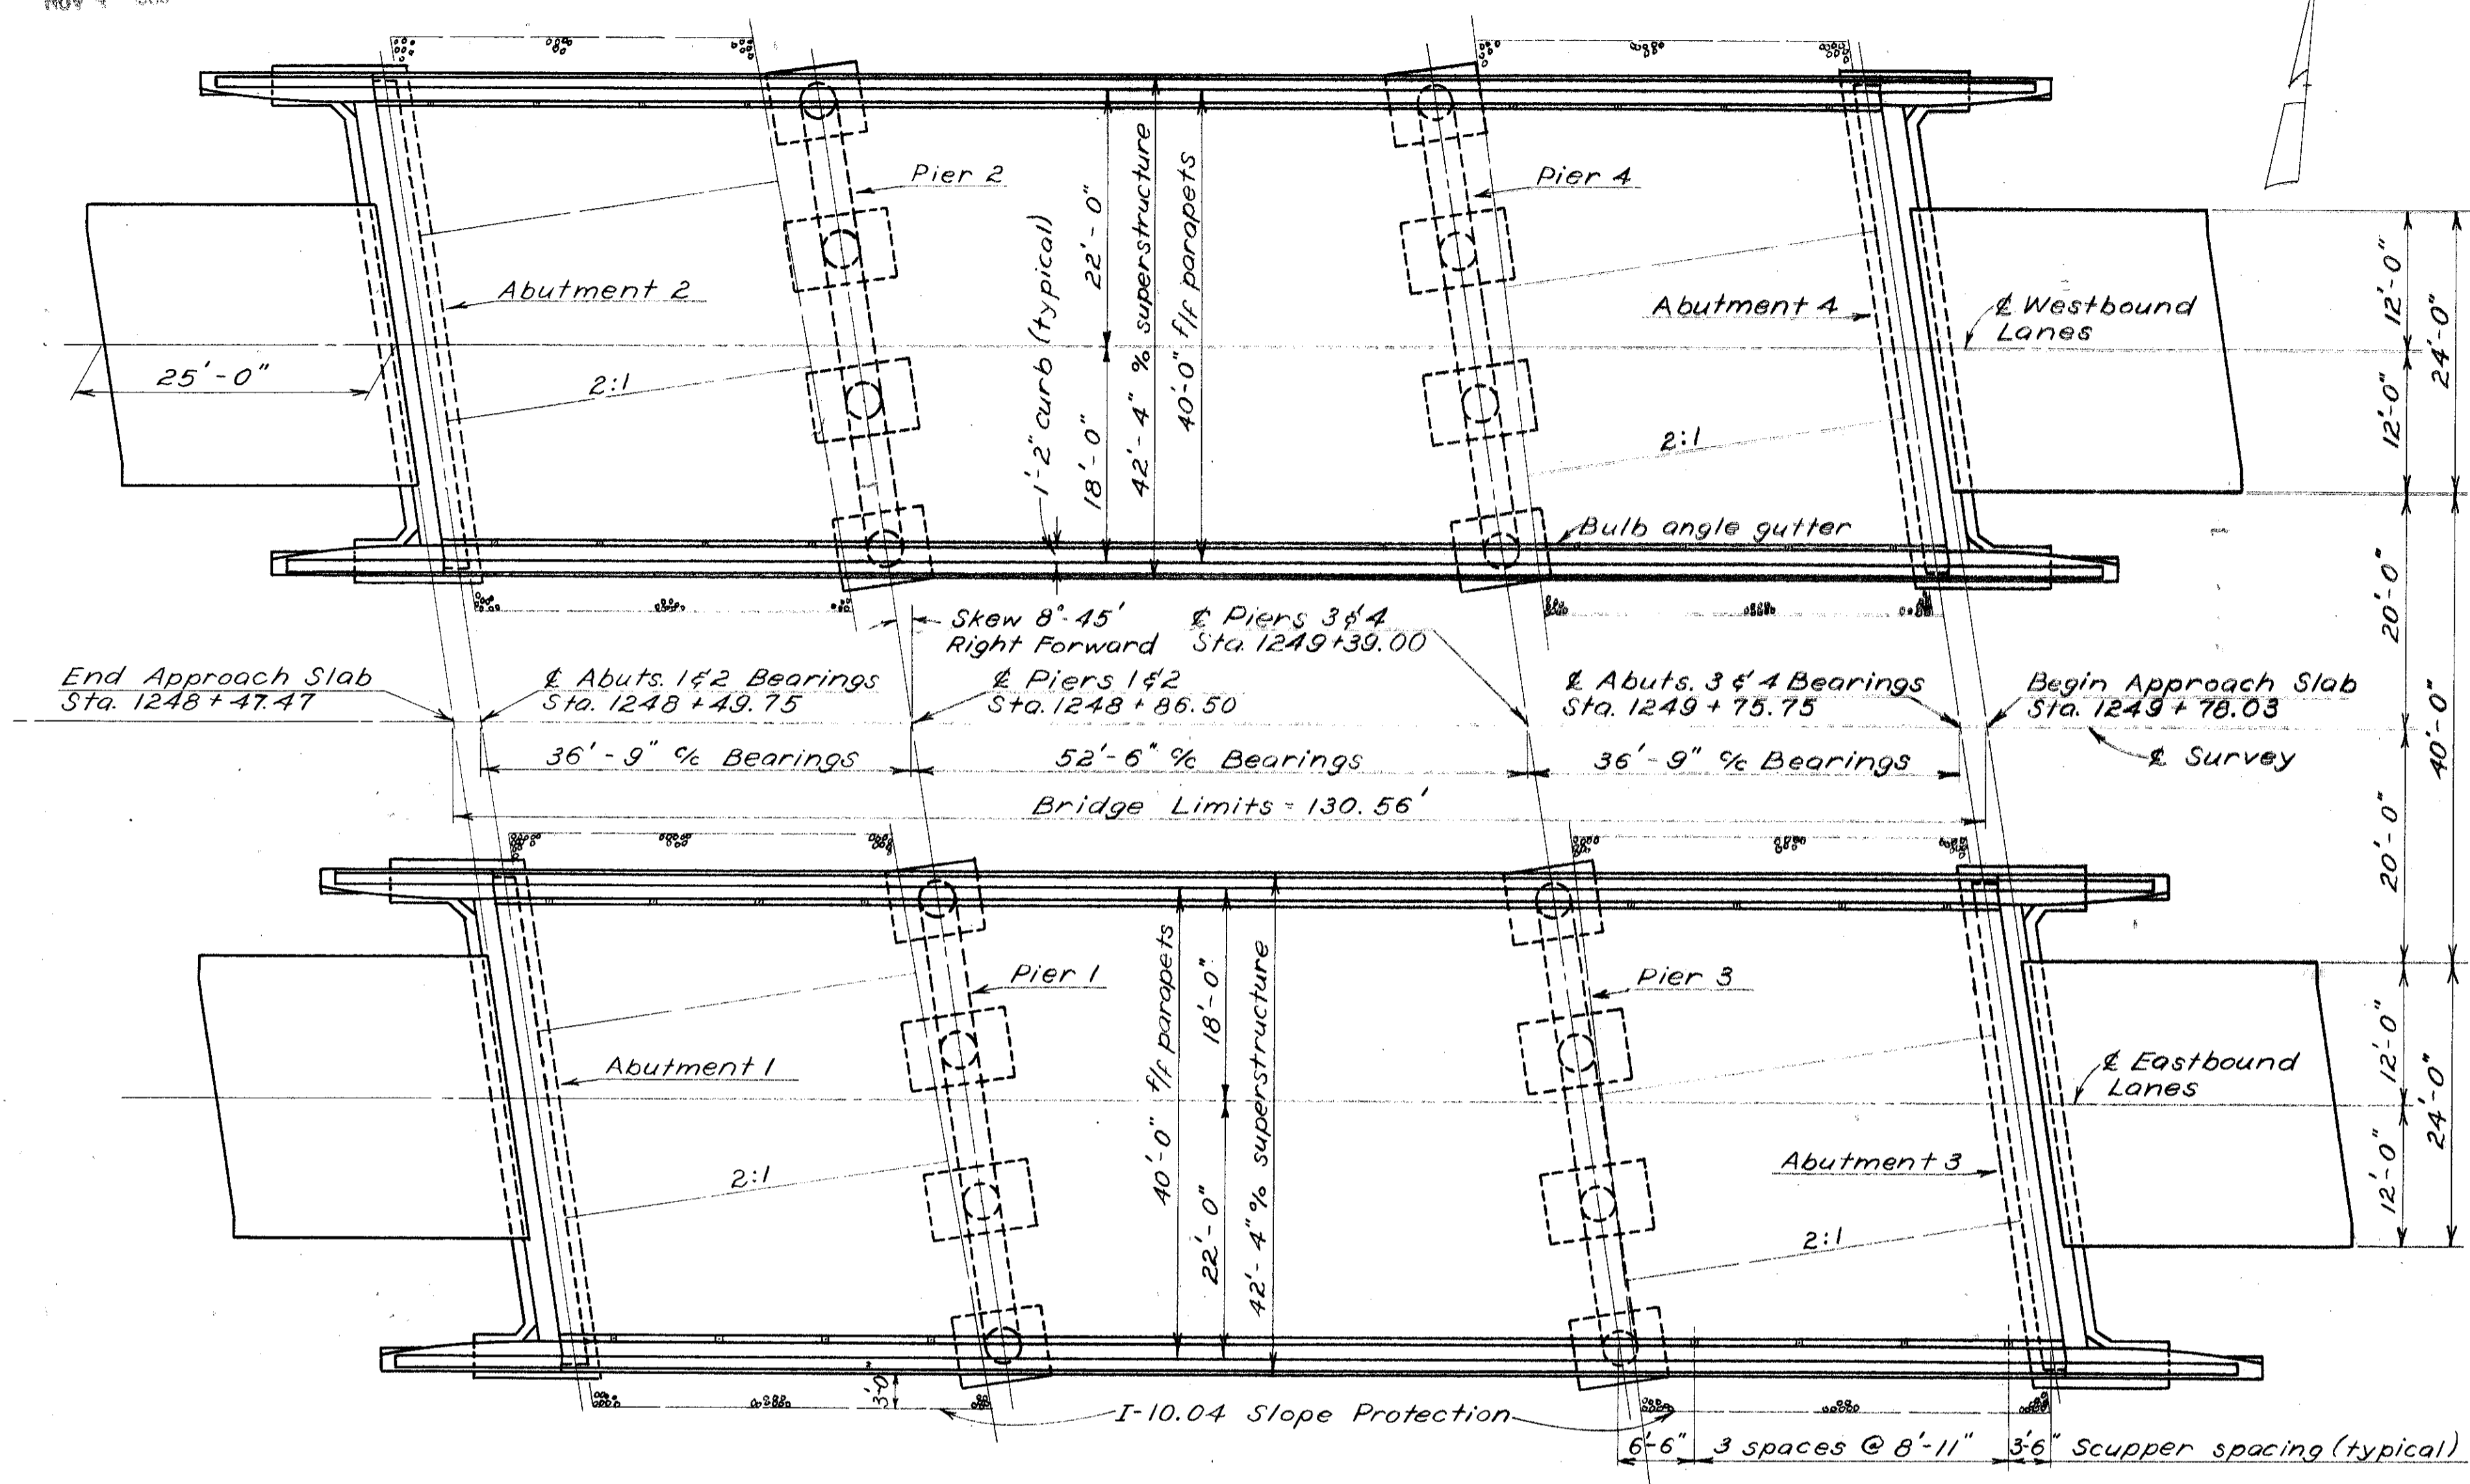 Nov 4
Pier 2
Pier 4
Abutment 2
Abutment 4
℄ Westbound
Lanes
25'-0"
2:1
2:1
1'-2" curb (typical)
22'-0"
18'-0"
42'-4" o/o superstructure
40'-0" f/f parapets
Bulb angle gutter
12'-0"
12'-0"
24'-0"
Skew 8°-45'
Right Forward
℄ Piers 3 & 4
Sta. 1249+39.00
End Approach Slab
Sta. 1248 + 47.47
℄ Abuts. 1 & 2 Bearings
Sta. 1248 + 49.75
℄ Piers 1 & 2
Sta. 1248 + 86.50
℄ Abuts. 3 & 4 Bearings
Sta. 1249 + 75.75
Begin Approach Slab
Sta. 1249 + 78.03
℄ Survey
20'-0"
20'-0"
40'-0"
36'-9" c/c Bearings
52'-6" c/c Bearings
36'-9" c/c Bearings
Bridge Limits = 130.56'
Pier 1
Pier 3
Abutment 1
Abutment 3
40'-0" f/f parapets
18'-0"
22'-0"
42'-4" o/o superstructure
℄ Eastbound
Lanes
2:1
2:1
12'-0"
12'-0"
24'-0"
3'-0"
I-10.04 Slope Protection
6'-6"
3 spaces @ 8'-11"
3'-6"
Scupper spacing (typical)